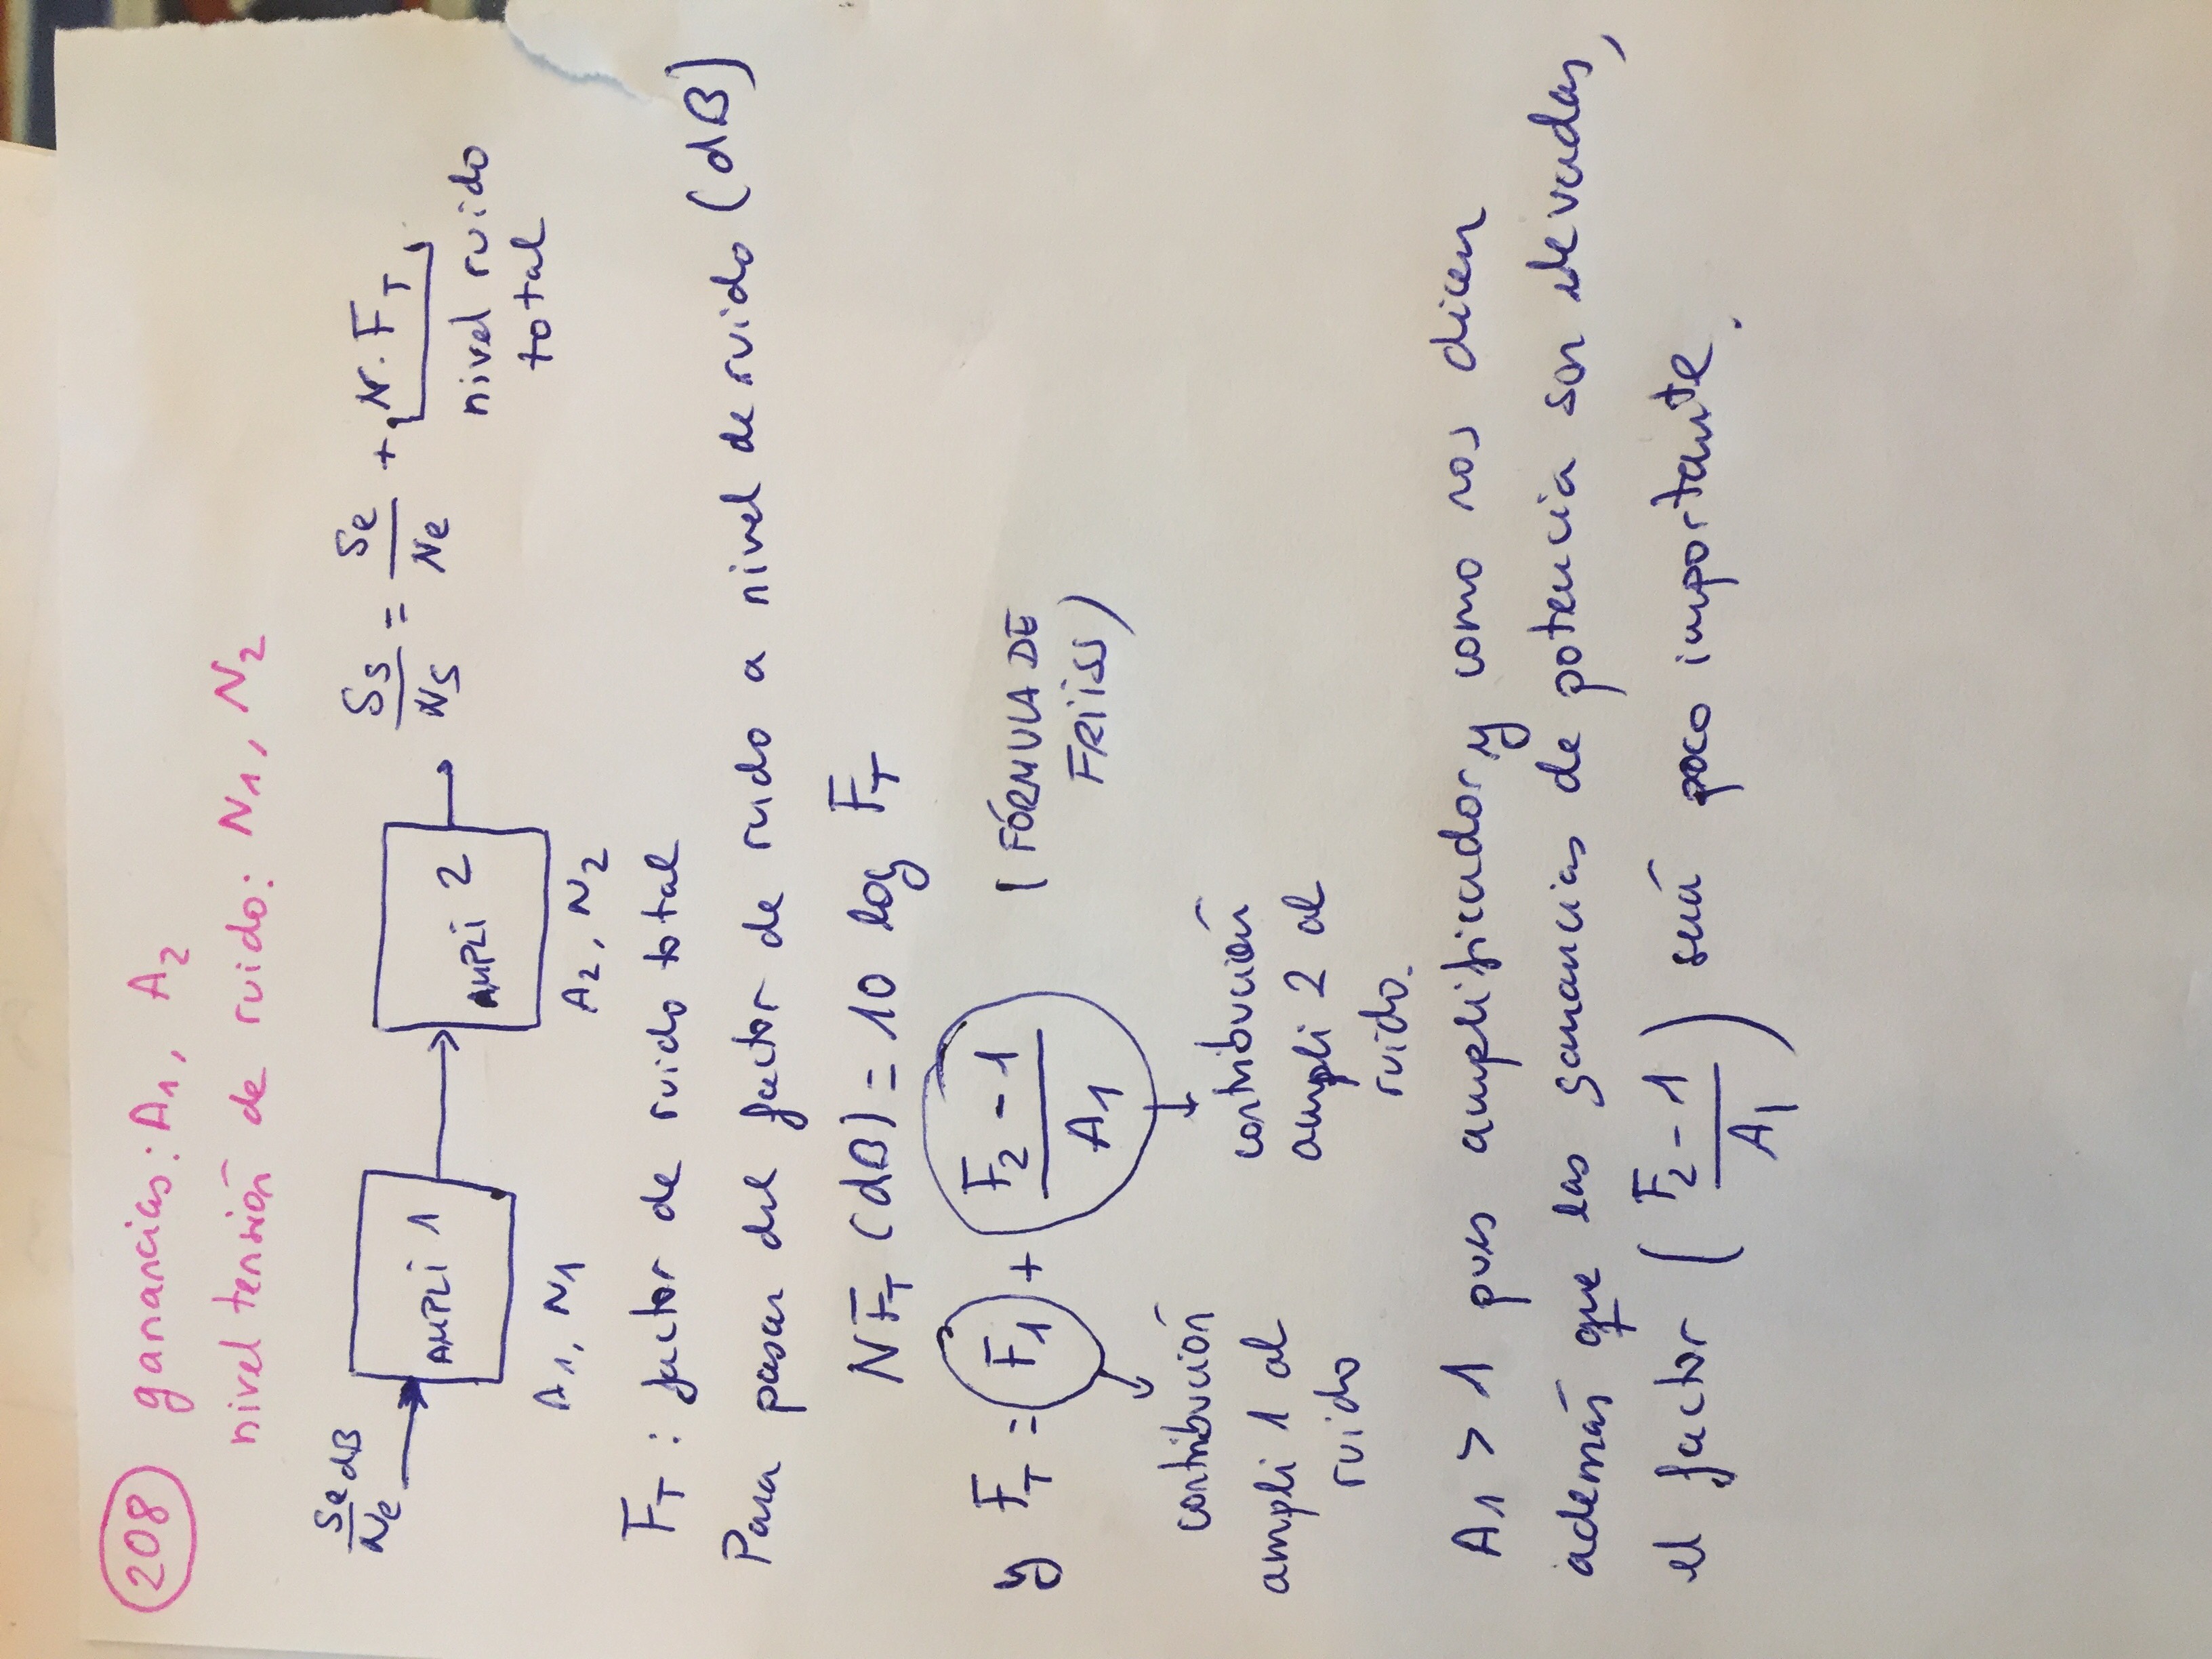 208 ganancias: A1, A2
nivel tensión de ruido: N1, N2
Se/Ne dB
AMPLI 1
AMPLI 2
Ss/Ns = Se/Ne + N.FT
A1, N1
A2, N2
nivel ruido
total
FT : factor de ruido total
Para pasar del factor de ruido a nivel de ruido (dB)
NFT (dB) = 10 log FT
y FT = F1 + (F2 - 1)/A1
(FÓRMULA DE
FRIISS)
contribución
ampli 1 al
ruido
contribución
ampli 2 al
ruido.
A1 > 1 pues amplificador y como nos dicen
además que las ganancias de potencia son elevadas,
el factor (F2 - 1 / A1) será poco importante.